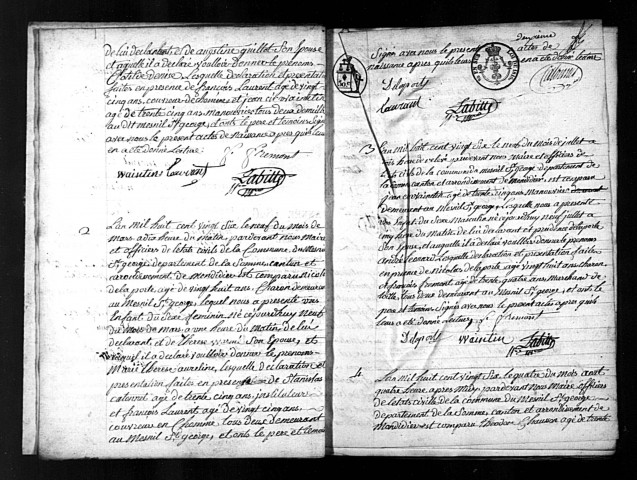 de lui déclarant et de augustine quillot Son Epouse
et auquelle il a déclaré voulloir Donner le prénoms
Lesquelle déclaration et présentation
faites en présence de françois Laurent age de vingt
cinq ans, couvreur de chaume et jean
age de trente cinq ans, Manouvrier tous deux demeurant
audit mesnil St george, dont le pere et temoins Signé
avec nous le présent actes de Naissance apres que leur
en a été donné Lecture
fremont
Waintin Laurent Labitte
2
L'an mil huit cent vingt Six le neuf du mois de
mars a dix heure du Matin, pardevant nous Maire
et officiers de létat civile de la Commune du Mesnil
St george, département de la Somme canton et
arondissement de mondidier est comparu nicolas
de la porte age de vingt huit ans, Charon demeurant
au Mesnil St george, lequel nous a présenté un
Enfant du Sexe feminin né cejourd'huy neuf
du mois de mars a une heure du matin, de lui
declarant et de Therese Son Epouse, et
auquel il a déclaré voulloir donner le prenoms
Marie Therese aurestine, laquelle déclaration et
présentation faites en présence de Stanislas
calonne age de trente cinq ans, instituteur
et françois Laurent age de vingt cinq ans,
couvreur en Chaume, tous deux demeurant
au Mesnil St george, et ont le pere et temoins
Signé avec nous le présent actes de
naissance apres que leurs en a été donné lecture
Delaporte calonne
Laurent Labitte
3
L'an mil huit cent vingt Six le neuf du mois de juillet a
pardevant nous Maire et officiers de
létat civile de la commune du mesnil St george département de
la Somme canton et arondissement de mondidier est comparu
jean age de trente cinq ans Manouvrier
demeurant au Mesnil St george, Lequelle nous a présenté
un Enfant du Sexe Masculin né cejourd'huy neuf juillet a
heure du Matin de lui declarant et
Son Epouse, et auquelle il a déclaré voulloir donner le prénoms
andré Leonard Lesquelle declaration et présentation faites
en présence de Nicolas de la porte age vingt huit ans charron
et françois fremont age de trente quatre ans Marchand de
tous deux demeurant au Mesnil St george, et ont le
pere et temoins Signés avec nous le présent acte apres que
leur a été donné Lecture fremont
Delaporte Waintin Labitte
4
L'an mil huit cent vingt Six le quatre du mois aout
quatre heure apres Midy pardevant Nous Maire officiers
de létats civille de la commune du Mesnil St george
departement de la Somme canton et arondissement de
Mondidier est comparu Theodore age de trente